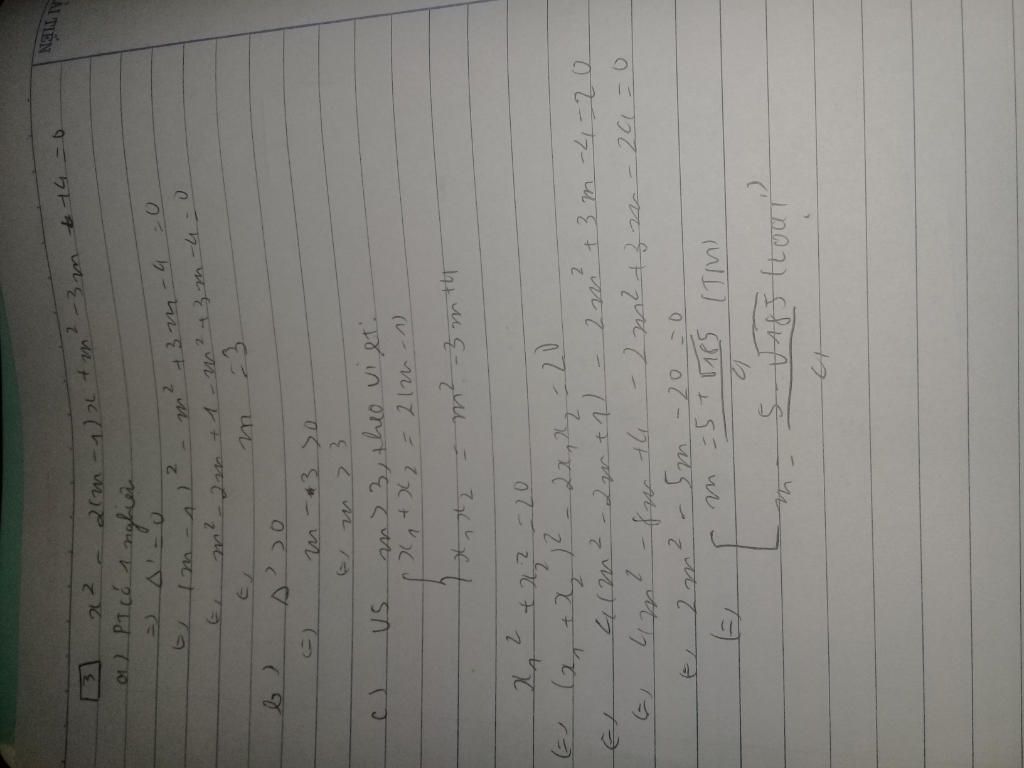 ẢI TIẾN
3 x² - 2(m-1)x + m² - 3m + 4 = 0
a) Pt có 1 nghiệm
=> Δ' = 0
<=> (m-1)² - m² + 3m - 4 = 0
<=> m² - 2m + 1 - m² + 3m - 4 = 0
<=> m = 3
b) Δ' > 0
<=> m - 3 > 0
<=> m > 3
c) VS m > 3, theo Viet:
{ x₁ + x₂ = 2(m-1)
x₁x₂ = m² - 3m + 4
x₁² + x₂² = 20
<=> (x₁ + x₂)² - 2x₁x₂ = 20
<=> 4(m² - 2m + 1) - 2m² + 3m - 4 = 20
<=> 4m² - 8m + 4 - 2m² + 3m - 24 = 0
<=> 2m² - 5m - 20 = 0
<=> [ m = 5 + √185 / 4 (TM)
m = 5 - √185 / 4 (loại)